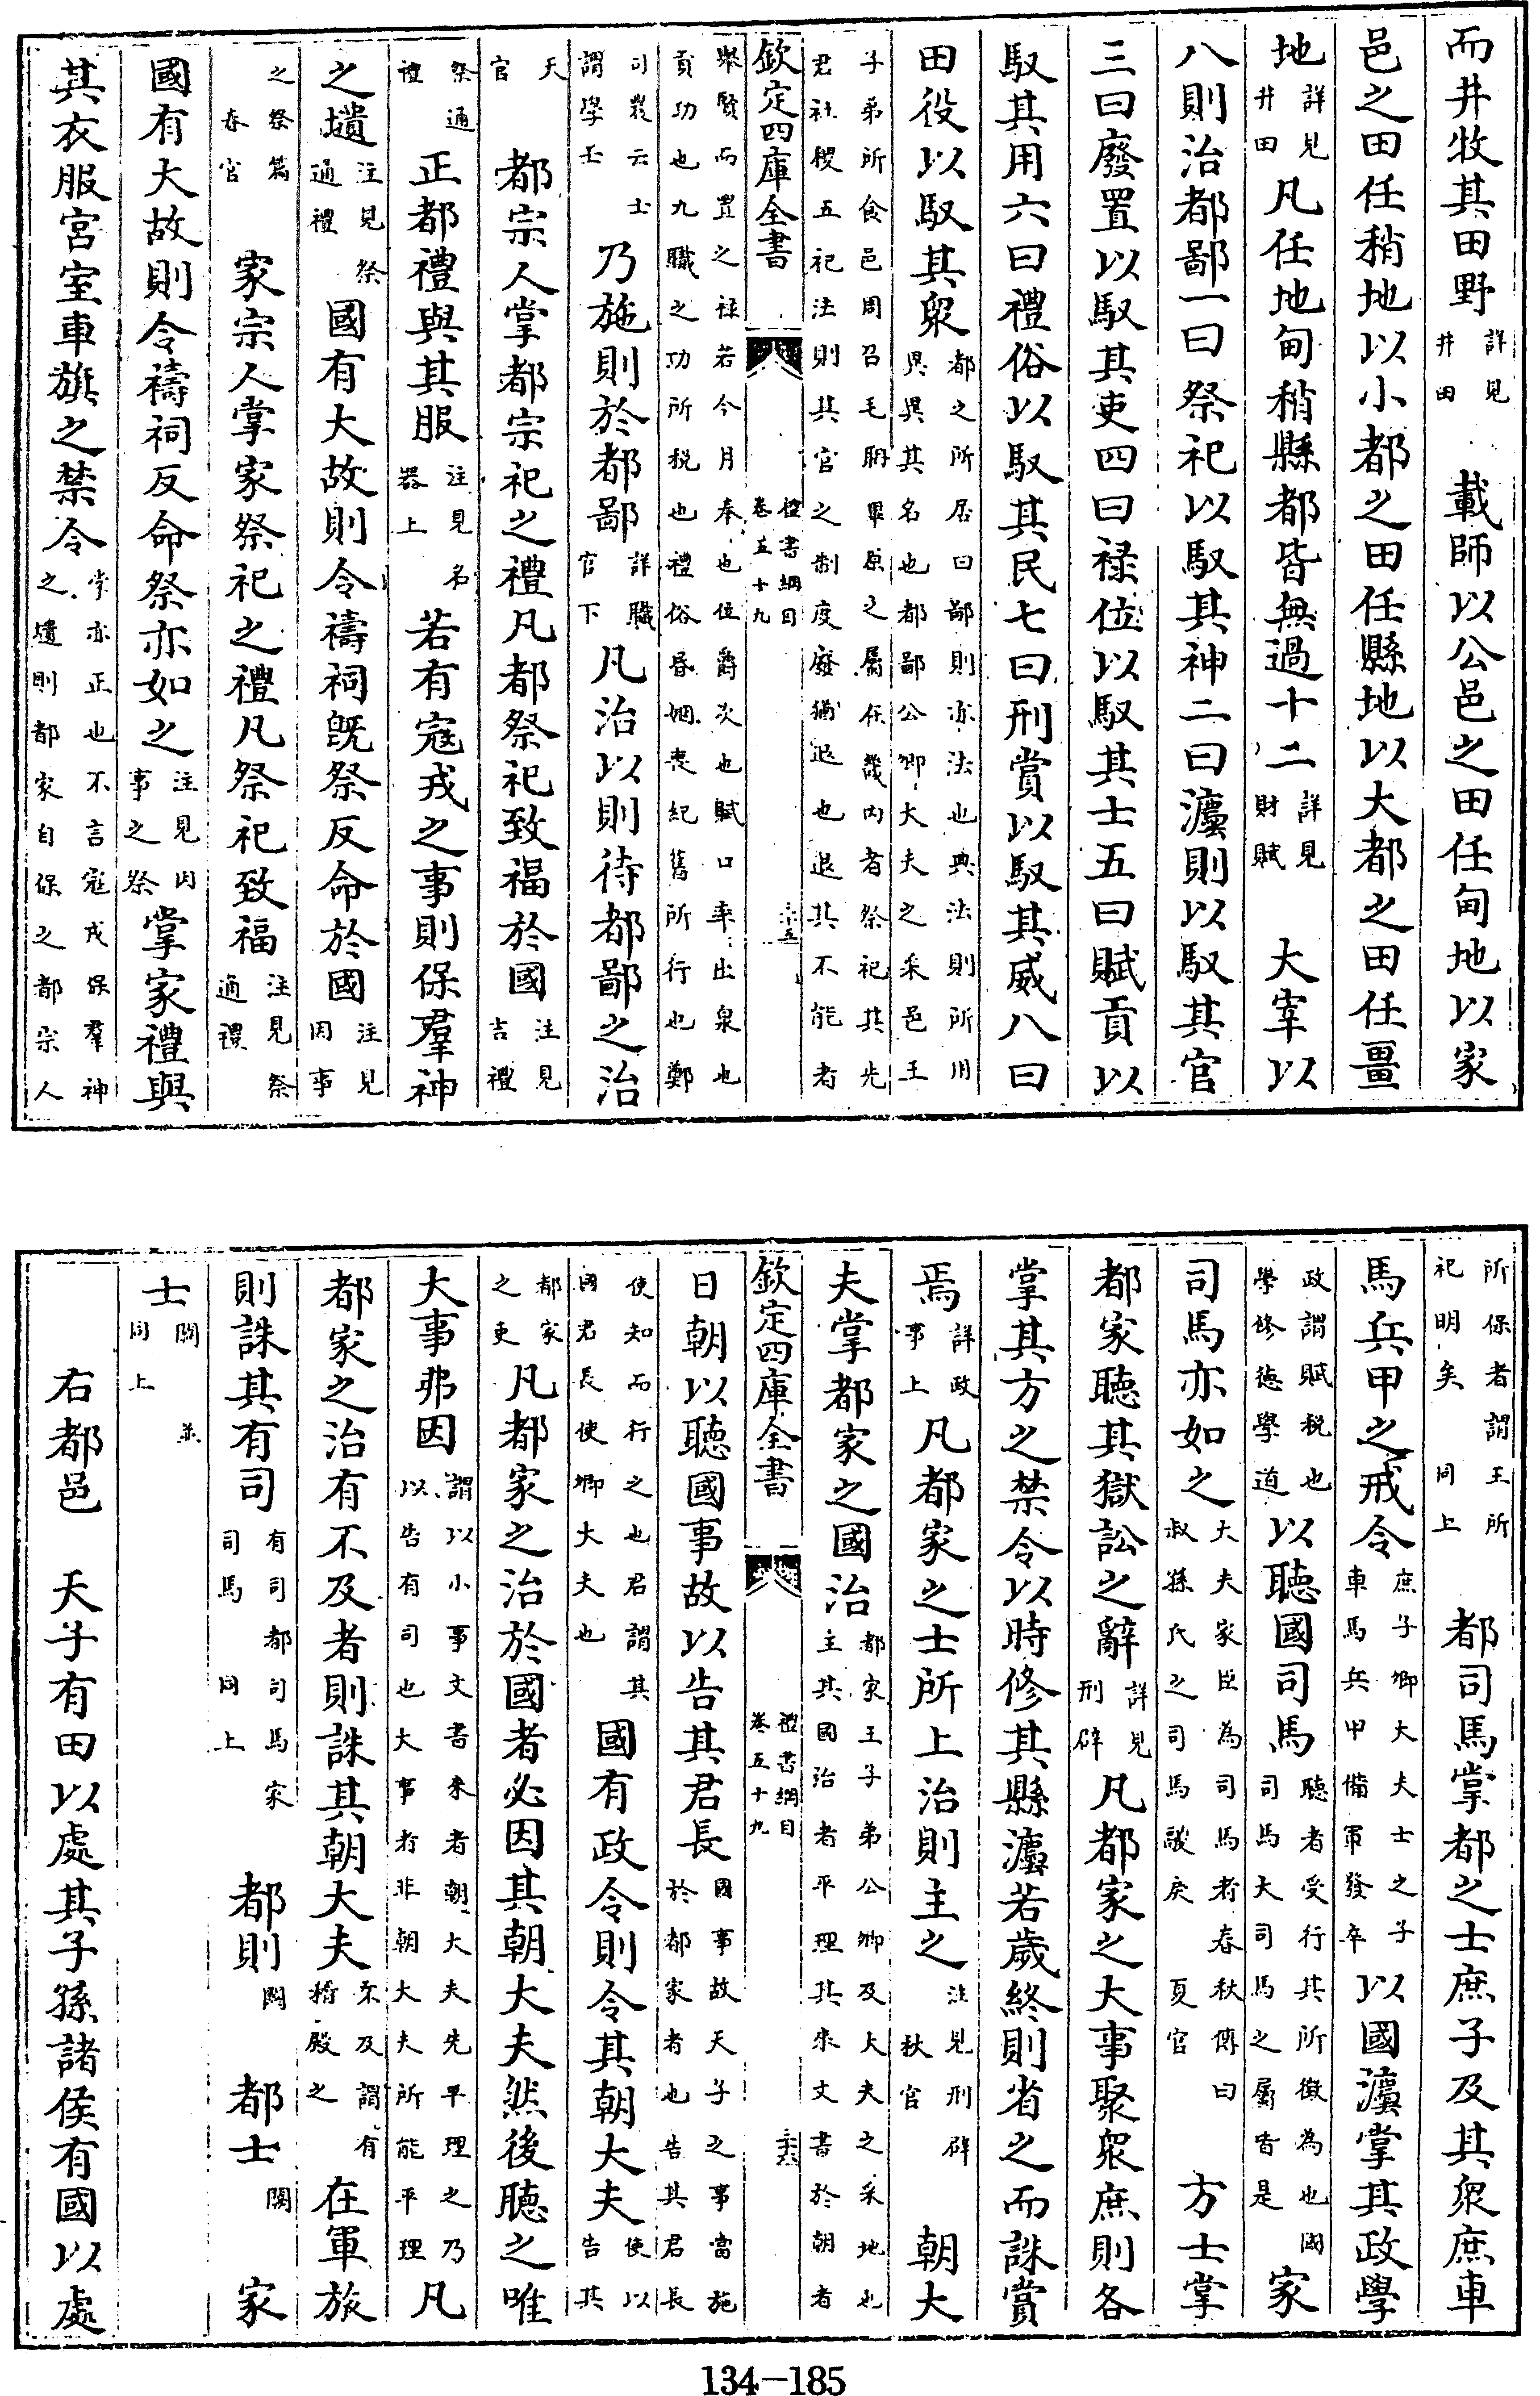 而井牧其田野詳見井田　載師以公邑之田任甸地以家
邑之田任稍地以小都之田任縣地以大都之田任畺
地詳見井田凡任地甸稍縣都皆無過十二詳見財賦　大宰以
八則治都鄙一曰祭祀以馭其神二曰灋則以馭其官
三曰廢置以馭其吏四曰祿位以馭其士五曰賦貢以
馭其用六曰禮俗以馭其民七曰刑賞以馭其威八曰
田役以馭其衆都之所居曰鄙則亦法也典法則所用異異其名也都鄙公卿大夫之采邑王
子弟所食邑周召毛聃畢原之屬在畿内者祭祀其先君社稷五祀法則其官之制度廢猶退也退其不能者
欽定四庫全書　禮書綱目卷五十九　三十五
舉賢而置之祿若今月奉也位爵次也賦口率出泉也貢功也九職之功所税也禮俗昏姻喪紀舊所行也鄭
司農云士謂學士　乃施則於都鄙詳職官下凡治以則待都鄙之治
天官　都宗人掌都宗祀之禮凡都祭祀致福於國注見吉禮
祭通禮正都禮與其服注見名器上若有寇戎之事則保羣神
之壝注見祭通禮國有大故則令禱祠既祭反命於國注見因事
之祭篇春官　家宗人掌家祭祀之禮凡祭祀致福注見祭通禮
國有大故則令禱祠反命祭亦如之注見因事之祭掌家禮與
其衣服宮室車旗之禁令掌亦正也不言寇戎保羣神之壝則都家自保之都宗人
所保者謂王所祀明矣　同上　都司馬掌都之士庶子及其衆庶車
馬兵甲之戒令庶子卿大夫士之子車馬兵甲備軍發卒以國灋掌其政學
政謂賦税也學修德學道以聽國司馬聽者受行其所徵為也國司馬大司馬之屬皆是　家
司馬亦如之大夫家臣為司馬者春秋傳曰叔孫氏之司馬鬷戾　夏官　方士掌
都家聽其獄訟之辭詳見刑辟凡都家之大事聚衆庶則各
掌其方之禁令以時修其縣灋若歲終則省之而誅賞
焉詳政事上凡都家之士所上治則主之注見刑辟　秋官　朝大
夫掌都家之國治都家王子弟公卿及大夫之采地也主其國治者平理其來文書於朝者
欽定四庫全書　禮書綱目卷五十九　三十六
日朝以聽國事故以告其君長國事故天子之事當施於都家者也告其君長
使知而行之也君謂其國君長使卿大夫也　國有政令則令其朝大夫使以告其
都家之吏凡都家之治於國者必因其朝大夫然後聽之唯
大事弗因謂以小事文書來者朝大夫先平理之乃以告有司也大事者非朝大夫所能平理凡
都家之治有不及者則誅其朝大夫不及謂有稽殿之在軍旅
則誅其有司有司都司馬家司馬　同上　都則闕　都士闕　家
士闕　並同上
右都邑　天子有田以處其子孫諸侯有國以處
134-185